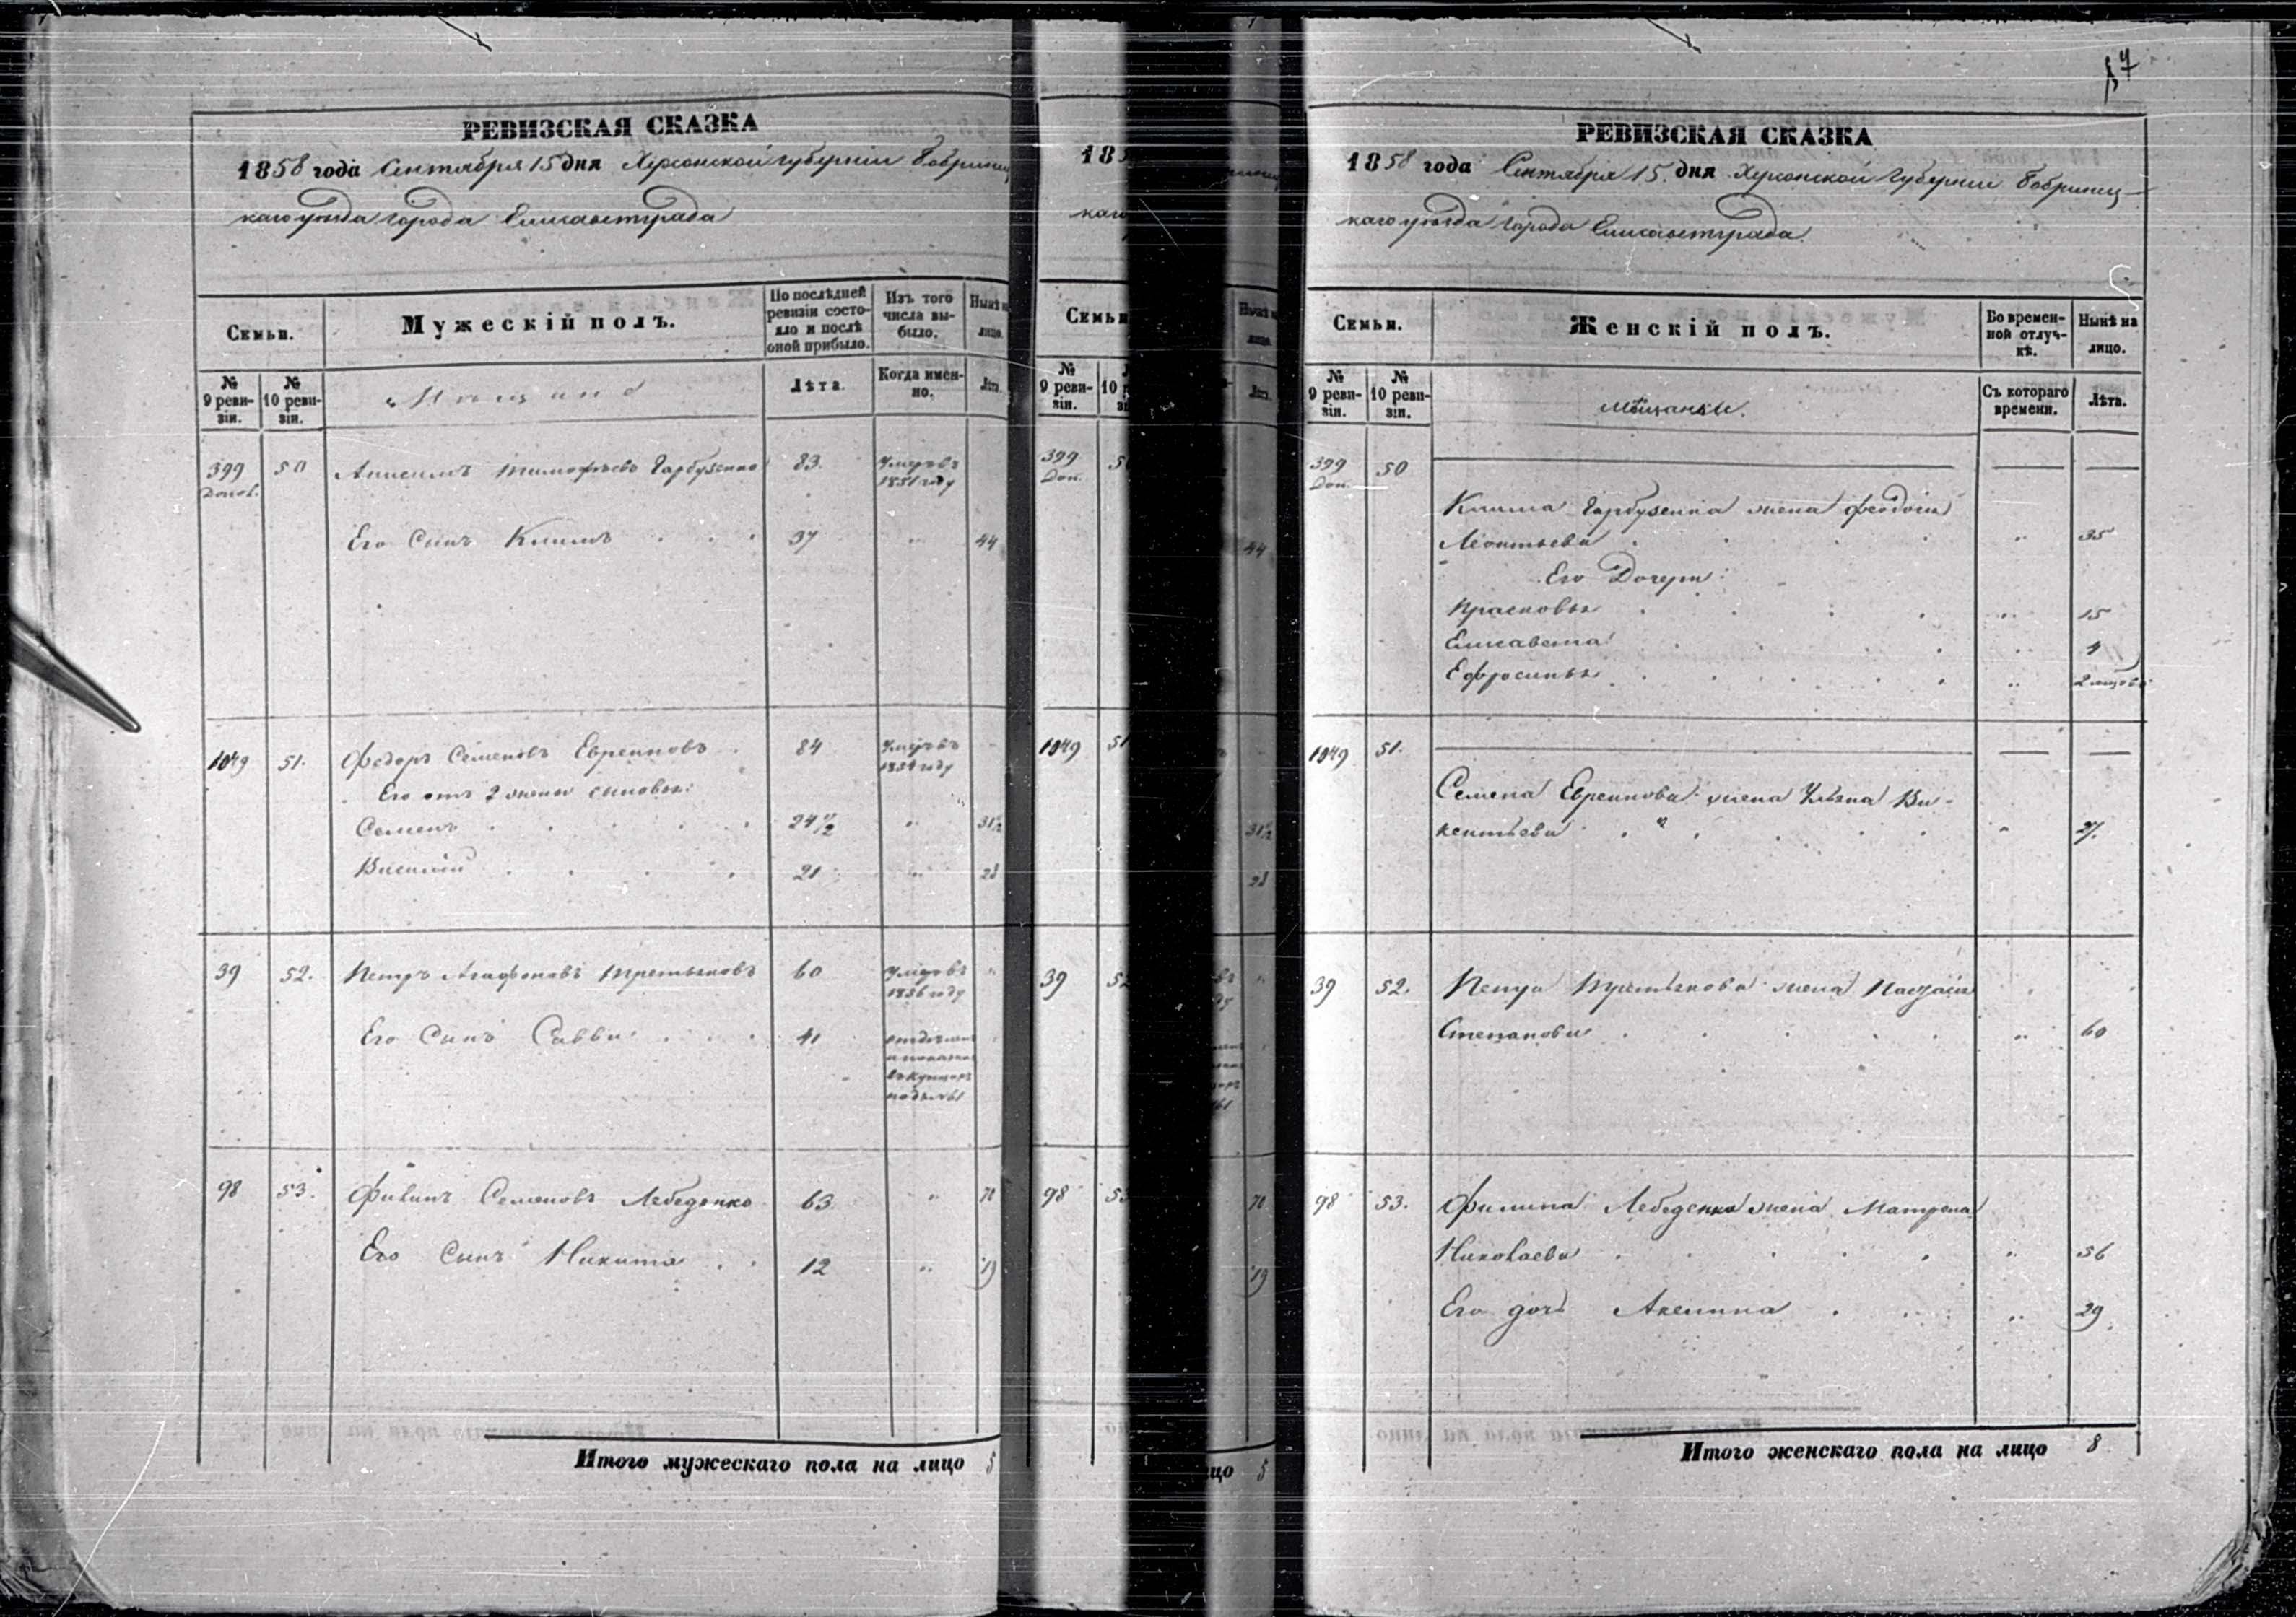 РЕВИЗСКАЯ СКАЗКА
1858 года Сентября 15 дня Херсонской губерніи Бобринец
каго уѣзда города Елисаветграда
Семьи.
Мужескій полъ.
По послѣдней ревизіи состояло и послѣ оной прибыло.
Изъ того числа выбыло.
Нынѣ на лицо.
№ 9 ревизіи.
№ 10 ревизіи.
Мѣщане
Лѣта.
Когда именно.
Лѣта.
399 50 Анисимъ Тимофѣевъ Гарбузенко 83. Умеръ въ
1851 году
Его Сынъ Климъ . . . 37 " 44
1049 51. Федоръ Семеновъ Евреиновъ . 84 Умеръ въ
1854 году
Его отъ 2 жены сыновья:
Семенъ . . . . . 24 1/2 " 31 1/2
Василий . . . . 21 " 28
39 52. Петръ Агафоновъ Третьяковъ 60 Умеръ въ "
1856 году
Его Сынъ Савва . . . 41
98 53. Филипъ Семеновъ Лебеденко 63 " 70
Его Сынъ Никита . . 12 " 19
Итого мужескаго пола на лицо 5
18
каго
Семьи
№ 9 ревизіи.
399 5
Доп.
1049 51
39 52
98 53
Нынѣ на лицо.
Лѣта.
44
31 1/2
28
70
19
цо 5
57
РЕВИЗСКАЯ СКАЗКА
1858 года Сентября 15. дня Херсонской Губерніи Бобринец-
каго уѣзда города Елисаветграда.
Семьи.
Женскій полъ.
Во временной отлучкѣ.
Нынѣ на лицо.
№ 9 ревизіи.
№ 10 ревизіи.
Мѣщанки.
Съ котораго времени.
Лѣта.
399 50
Доп.
Клима Гарбузенка жена Феодосія
Леонтьева . . . . . " 35
Его Дочери:
Прасковья . . . " 15
Елисавета . . . " 4
Ефросинья . . . . . "
1049 51.
Семена Евреинова жена Ульяна Ви-
кентьева . . . . . " 27.
39 52. Петра Третьякова жена
Степанова . . . . . " 60
98 53. Филипа Лебеденка жена Матрена
Николаева . . . . . " 56
Его дочь Акелина . . . " 29
Итого женскаго пола на лицо 8